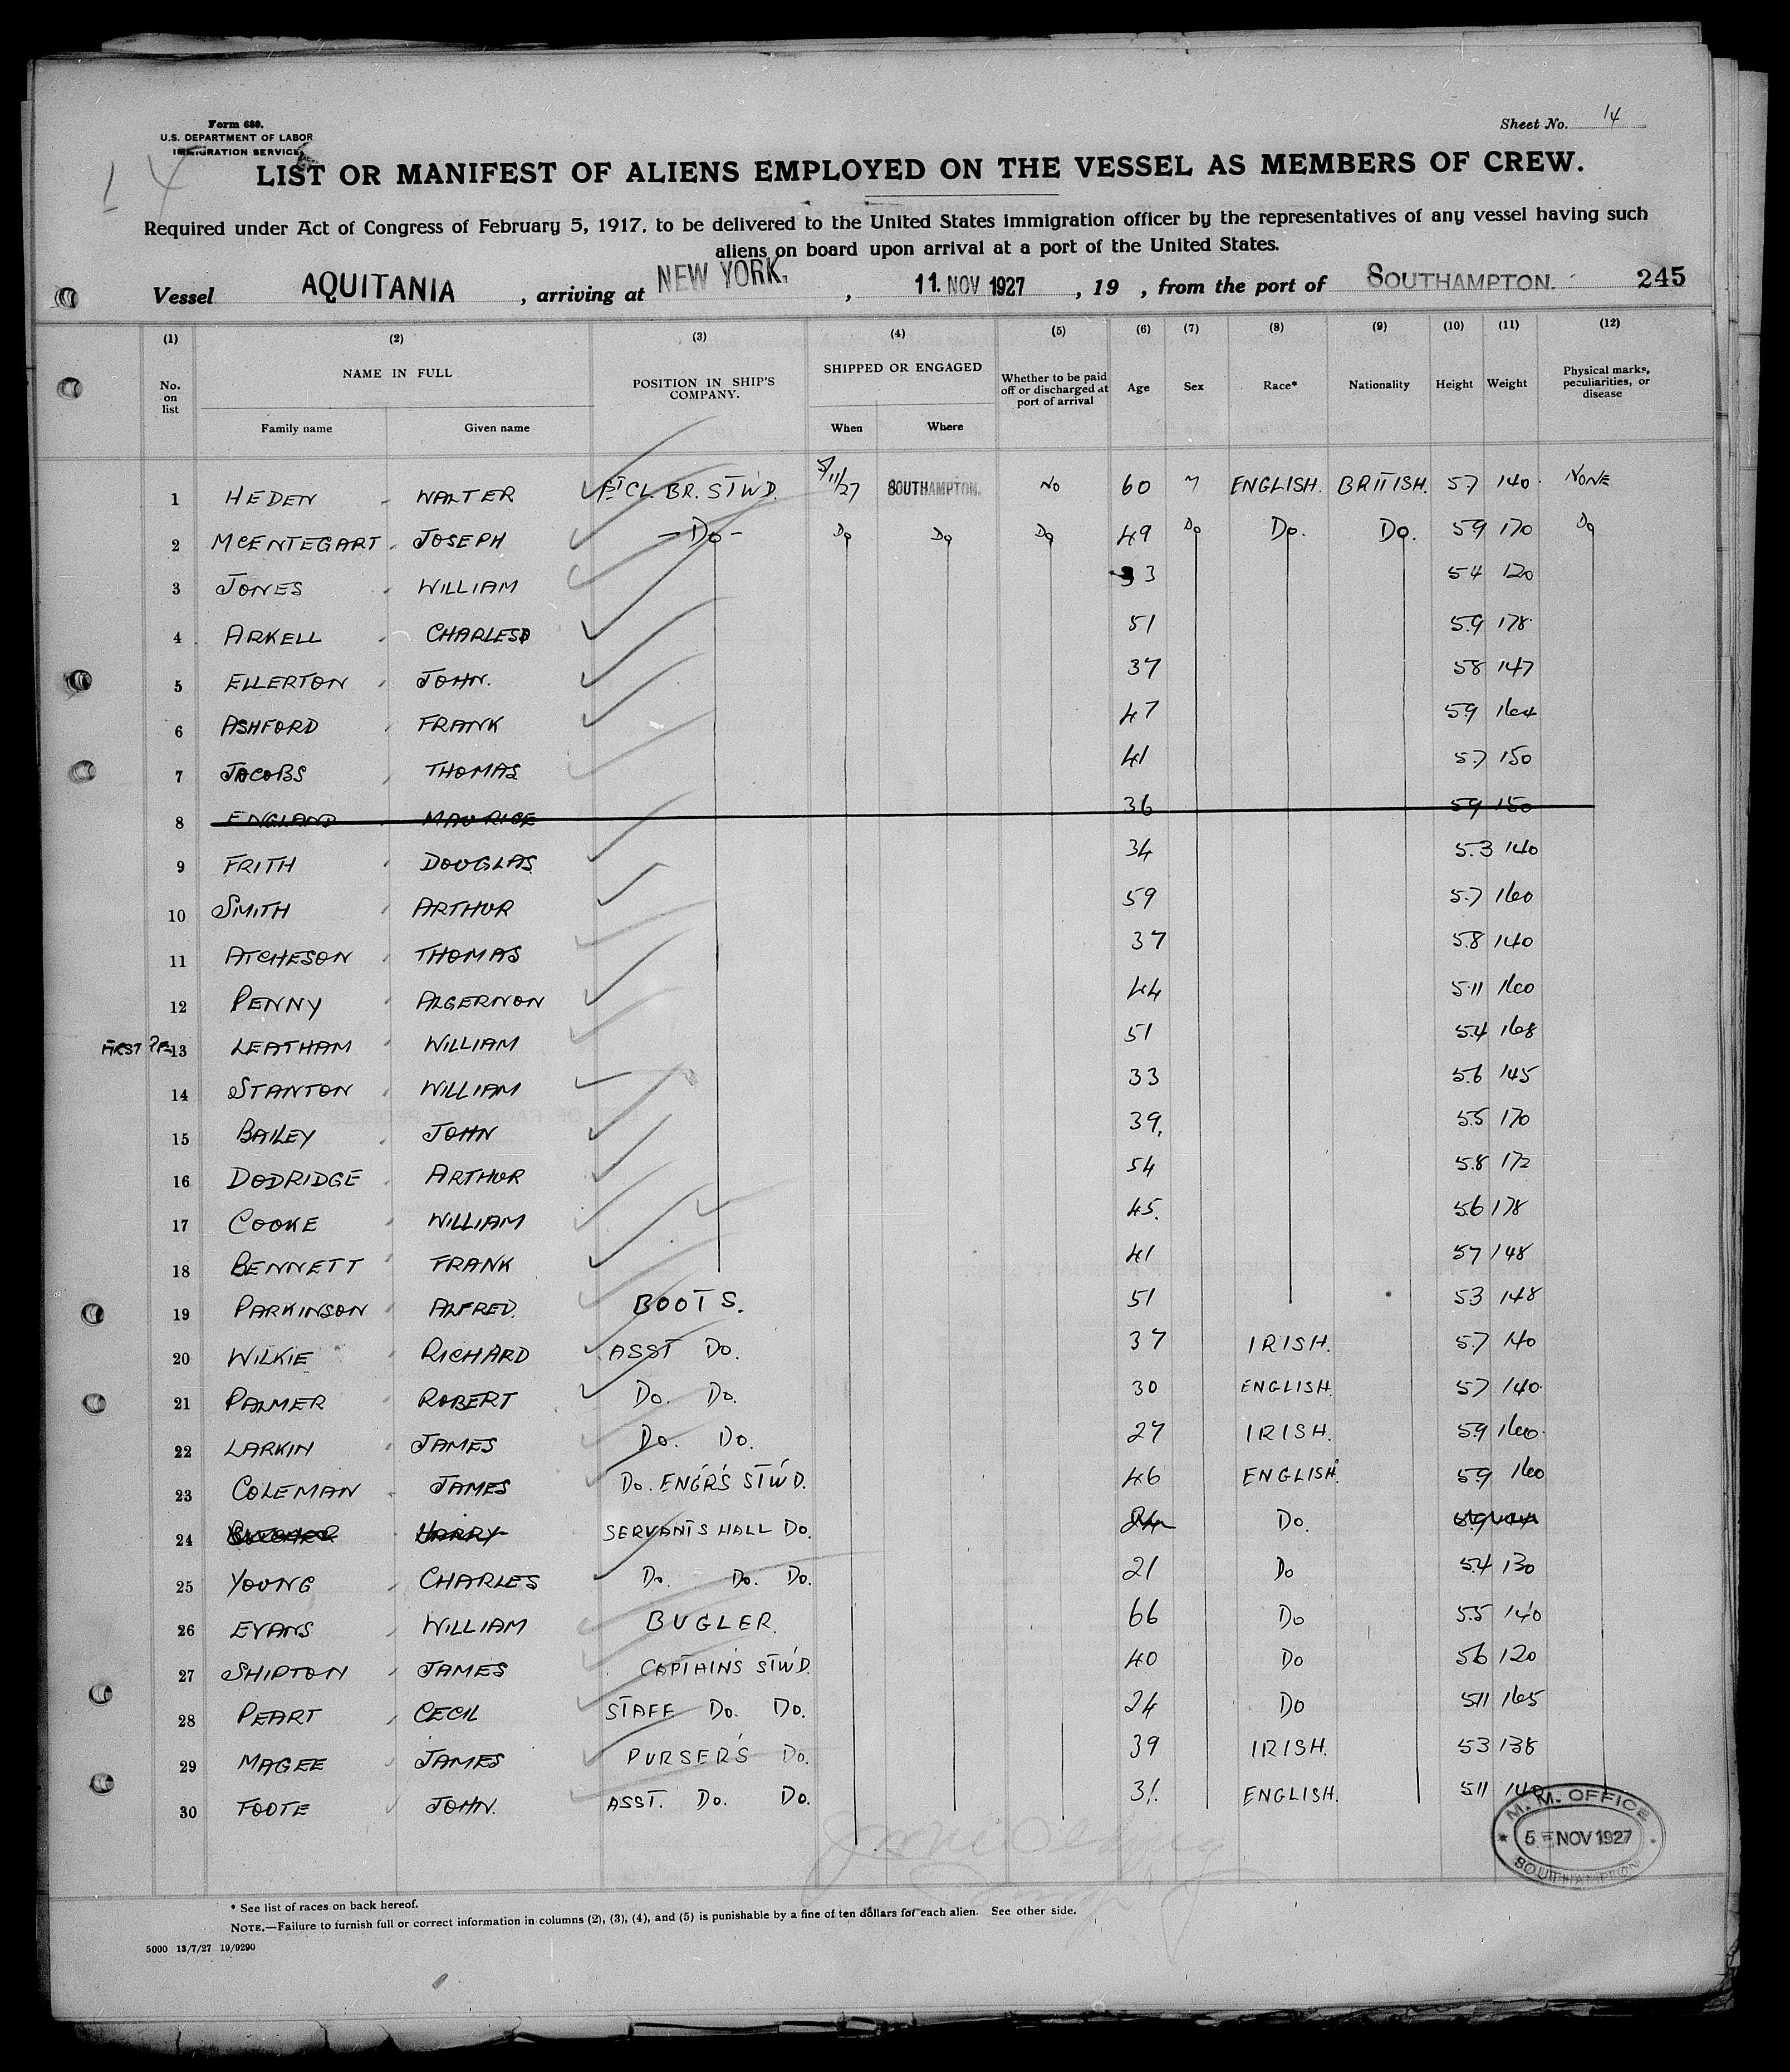 Form 680.
U.S. DEPARTMENT OF LABOR
IMMIGRATION SERVICE
14
Sheet No. 14
LIST OR MANIFEST OF ALIENS EMPLOYED ON THE VESSEL AS MEMBERS OF CREW.
Required under Act of Congress of February 5, 1917, to be delivered to the United States immigration officer by the representatives of any vessel having such
aliens on board upon arrival at a port of the United States.
Vessel AQUITANIA, arriving at NEW YORK, 11. NOV 1927, 19 , from the port of SOUTHAMPTON. 245
(1) (2) (3) (4) (5) (6) (7) (8) (9) (10) (11) (12)
No. on list NAME IN FULL POSITION IN SHIP'S COMPANY. SHIPPED OR ENGAGED Whether to be paid off or discharged at port of arrival Age Sex Race* Nationality Height Weight Physical marks, peculiarities, or disease
Family name Given name When Where
1 HEDEN WALTER 1ST CL. BR. STWD. 5/11/27 SOUTHAMPTON. NO 60 M ENGLISH. BRITISH. 5.7 140. NONE
2 MCENTEGART JOSEPH - Do - Do Do Do 49 Do Do. Do. 5.9 170 Do
3 JONES WILLIAM 33 5.4 120
4 ARKELL CHARLES 51 5.9 178
5 ELLERTON JOHN. 37 5.8 147
6 ASHFORD FRANK 47 5.9 164
7 JACOBS THOMAS 41 5.7 150
8 ENGLAND MAURICE 36 5.9 150
9 FRITH DOUGLAS 34 5.3 140
10 SMITH ARTHUR 59 5.7 160
11 ATCHESON THOMAS 37 5.8 140
12 PENNY ALGERNON 44 5.11 160
FIRST 13 LEATHAM WILLIAM 51 5.4 168
14 STANTON WILLIAM 33 5.6 145
15 BAILEY JOHN 39. 5.5 170
16 DODRIDGE ARTHUR 54 5.8 172
17 COOKE WILLIAM 45. 5.6 178
18 BENNETT FRANK 41 5.7 148
19 PARKINSON ALFRED. BOOTS. 51 5.3 148
20 WILKIE RICHARD ASST Do. 37 IRISH. 5.7 140
21 PALMER ROBERT Do. Do. 30 ENGLISH. 5.7 140.
22 LARKIN JAMES Do. Do. 27 IRISH. 5.9 160.
23 COLEMAN JAMES Do. ENGR'S STWD. 46 ENGLISH. 5.9 160
24 HARRY SERVANTS HALL Do. 24 Do.
25 YOUNG CHARLES Do. Do. Do. 21 Do 5.4 130
26 EVANS WILLIAM BUGLER. 66 Do 5.5 140
27 SHIPTON JAMES CAPTAIN'S STWD. 40 Do 5.6 120
28 PEART CECIL STAFF Do. Do. 24 Do 5.11 165
29 MAGEE JAMES PURSER'S Do. 39 IRISH. 5.3 138
30 FOOTE JOHN. ASST. Do. Do. 31. ENGLISH. 5.11 140
M. M. OFFICE
5 - NOV 1927
SOUTHAMPTON
* See list of races on back hereof.
NOTE.—Failure to furnish full or correct information in columns (2), (3), (4), and (5) is punishable by a fine of ten dollars for each alien. See other side.
5000 13/7/27 19/9290